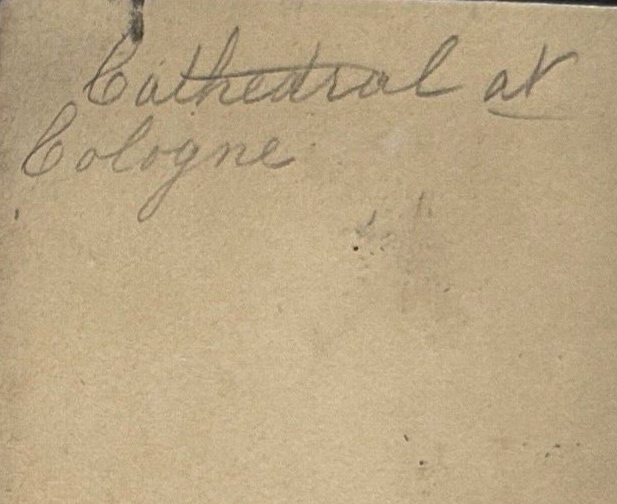 Cathedral at
Cologne